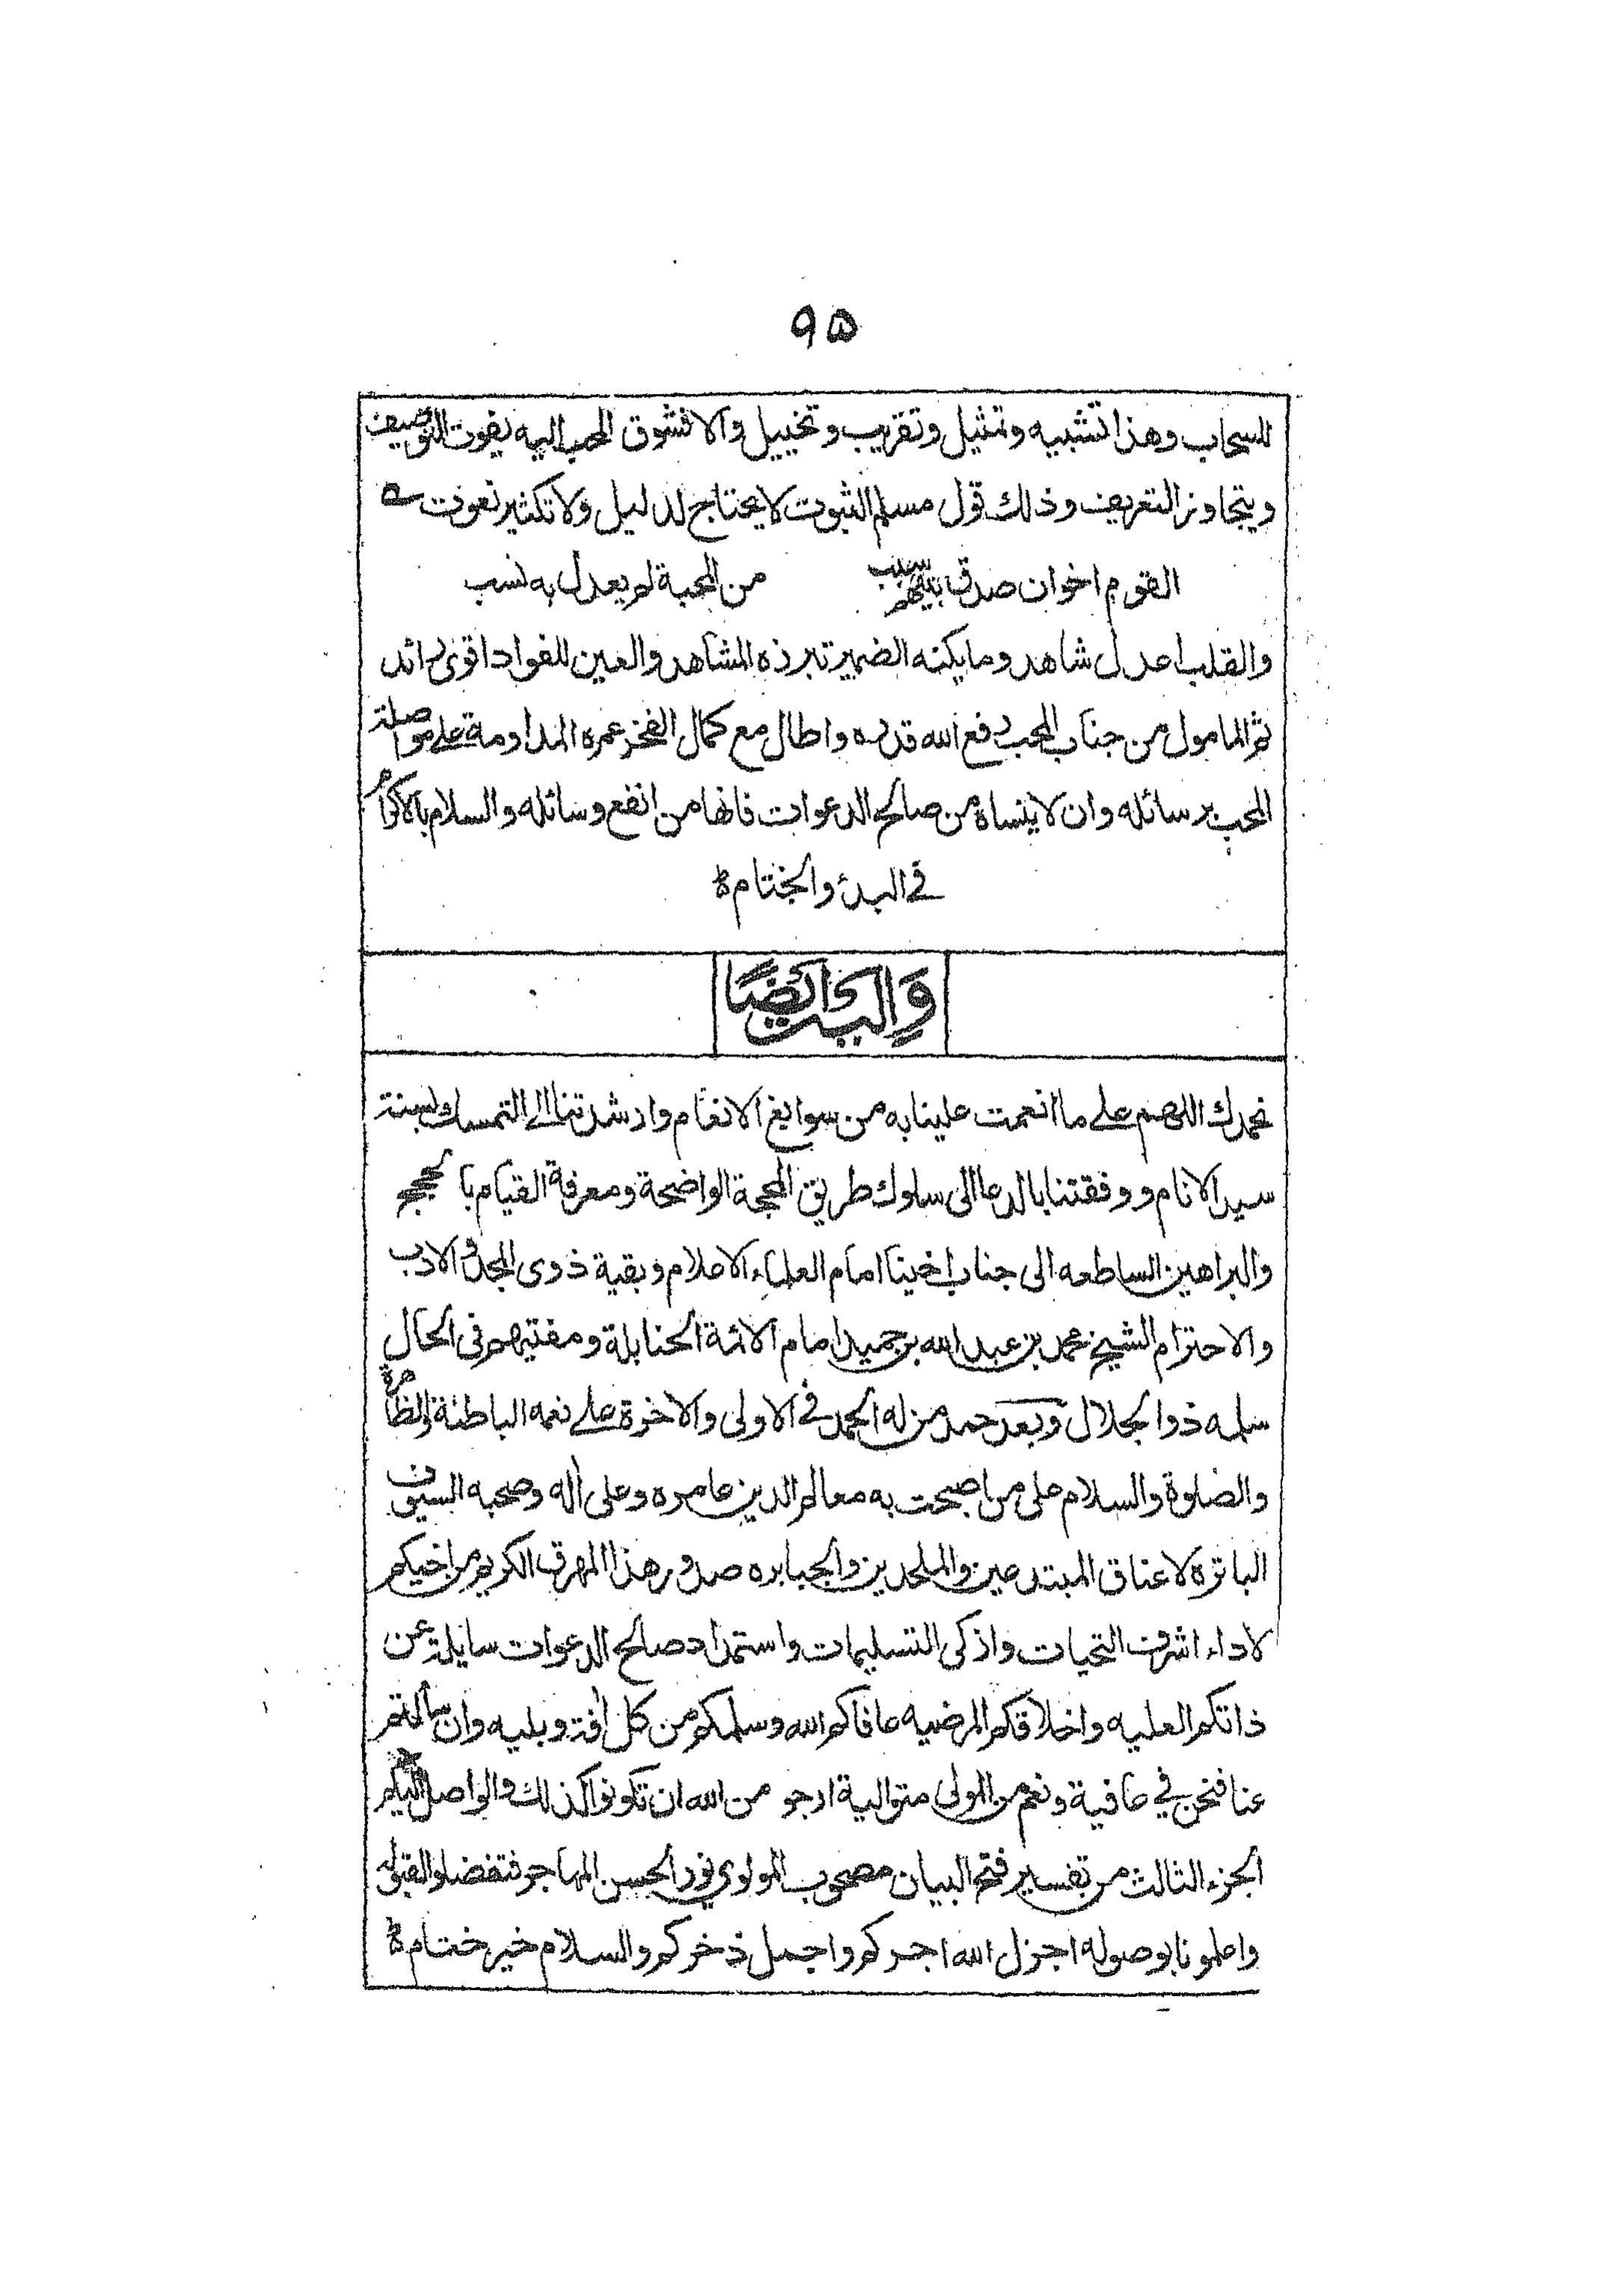 ۹۵
للسحاب وهذا تشبيه وتمثيل وتقريب وتخييل والا فشوق المحب اليه يفوت التوصيف
ويتجاوز التعريف وذلك قول مسلم الثبوت لا يحتاج لدليل ولا تكثير نعوت
القوم اخوان صدق بينهم سبب من المحبة لم يعدل به نسب
والقلب اعدل شاهد وما يكنه الضمير تبرزه المشاهد والعين للفواد اقوى رائد
ثم المامول من جناب المحب رفع الله قدره واطال مع كمال الفخر عمره المداومة على مواصلة
المحب برسائله وان لا ينساه من صالح الدعوات فانها من انفع وسائله والسلام بالاكرام
في البدئ والختام
وَاليك ايضًا
نحمدك اللهم على ما انعمت علينا به من سوابغ الانعام وارشدتنا الى التمسك بسنة
سيد الانام ووفقتنا بالدعا الى سلوك طريق المحجة الواضحة ومعرفة القيام بالحجج
والبراهين الساطعه الى جناب اخينا امام العلماء الاعلام وبقية ذوى المجد والادب
والاحترام الشيخ محمد بن عبد الله بن حميد امام الائمة الحنابلة ومفتيهم فى الحال
سلمه ذوا لجلال وبعد حمد من له الحمد في الاولى والاخرة على نعمه الباطنة والظاهرة
والصلوة والسلام على من اصبحت به معالم الدين عامره وعلى أله وصحبه السيوف
الباتره لاعناق المبتدعين والملحدين والجبابره صدور هذا المهرق الكريم من اخيكم
لاداء اشرف التحيات واذكى التسليمات واستمداد صالح الدعوات سايلة عن
ذاتكم العليه واخلاقكم المرضيه عافاكم الله وسلمكم من كل أفة وبليه وان سألتم
عنا فنحن في عافية ونعم من المولى متوالية ارجو من الله ان تكونوا كذلك والواصل اليكم
الجزء الثالث من تفسير فتح البيان مصحوب المولوي نور الحسن المهاجر فتفضلوا لقبوله
واعلمونا بوصوله اجزل الله اجركم واجمل ذخركم والسلام خير ختام